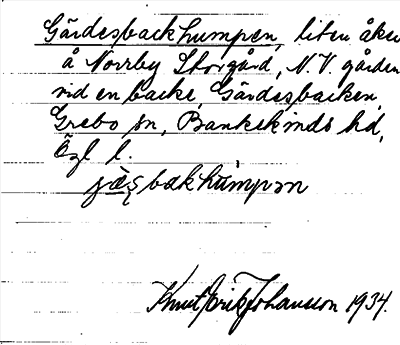 Gärdesbackhumpen, liten åker
å Norrby Storgård, N.V. gården
vid en backe, Gärdesbacken,
Grebo sn, Bankekinds hd,
Ögl l.
jæʂbakhumpɷn
Knut Erik Johansson 1934.